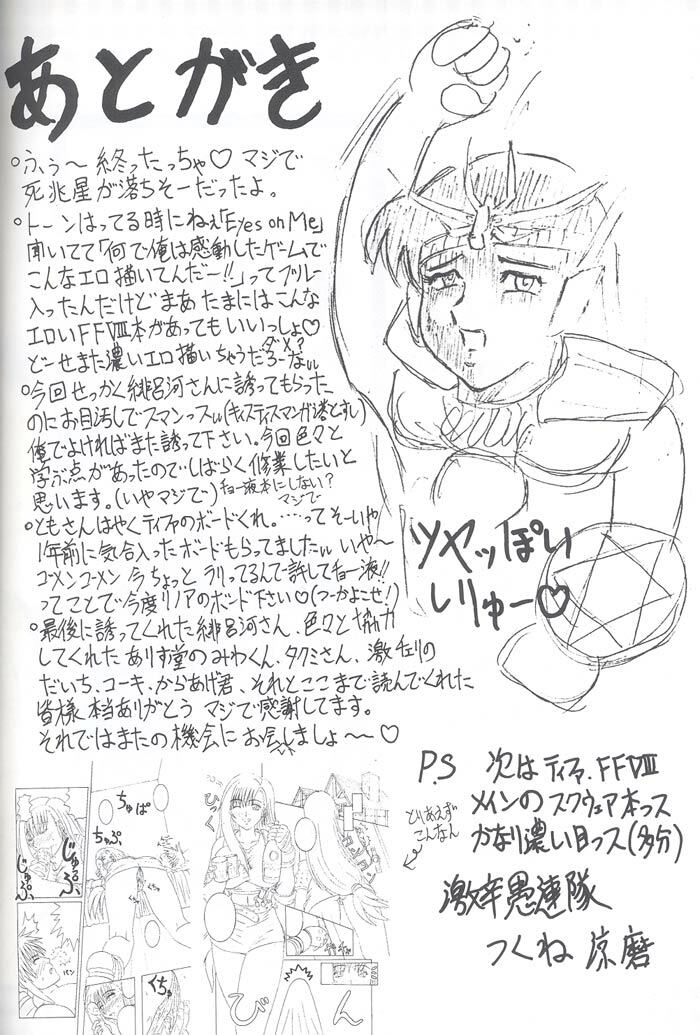 あとがき
○ふぅ〜終ったっちゃ♡マジで
死兆星が落ちそーだったよ。
○トーンはってる時にねぇ「Eyes on Me」
聞いてて「何で俺は感動したゲームで
こんなエロ描いてんだー!!」ってブルー
入ったんだけどまあたまにはこんな
エロいFFⅧ本があってもいいっしょ♡
ダメ?
どーせまた濃いエロ描いちゃうだろーな
○今回せっかく緋呂河さんに誘ってもらった
のにお目汚しでスマンっス
俺でよければまた誘って下さい。今回色々と
学ぶ点があったのでしばらく修業したいと
思います。(いやマジで)
チョー液本にしない?
マジで
○ともさんはやくティファのボードくれ。……ってそーいや
1年前に気合入ったボードもらってました いや〜
ゴーメンゴーメン 今ちょっとラリってるんで許してチョー液!!
ってことで今度リノアのボード下さい♡(つーかよこせ!)
○最後に誘ってくれた緋呂河さん、色々と協力
してくれたありす堂のみわくん、タクミさん、激チェリの
だいち、コーキ、からあげ君、それとここまで読んでくれた
皆様本当ありがとう マジで感謝してます。
それではまたの機会にお会しましょ〜♡
ツヤッぽい
しりゅー♡
P.S 次はティファ、FFⅧ
メインのスクウェア本っス
かなり濃い目っス(多分)
とりあえず
こんなん
激辛愚連隊
つくね涼磨
じゅぷ、
じゅぷ、
ちゅぱ
ちゅぷ、
くちゅ
ひっく
びん